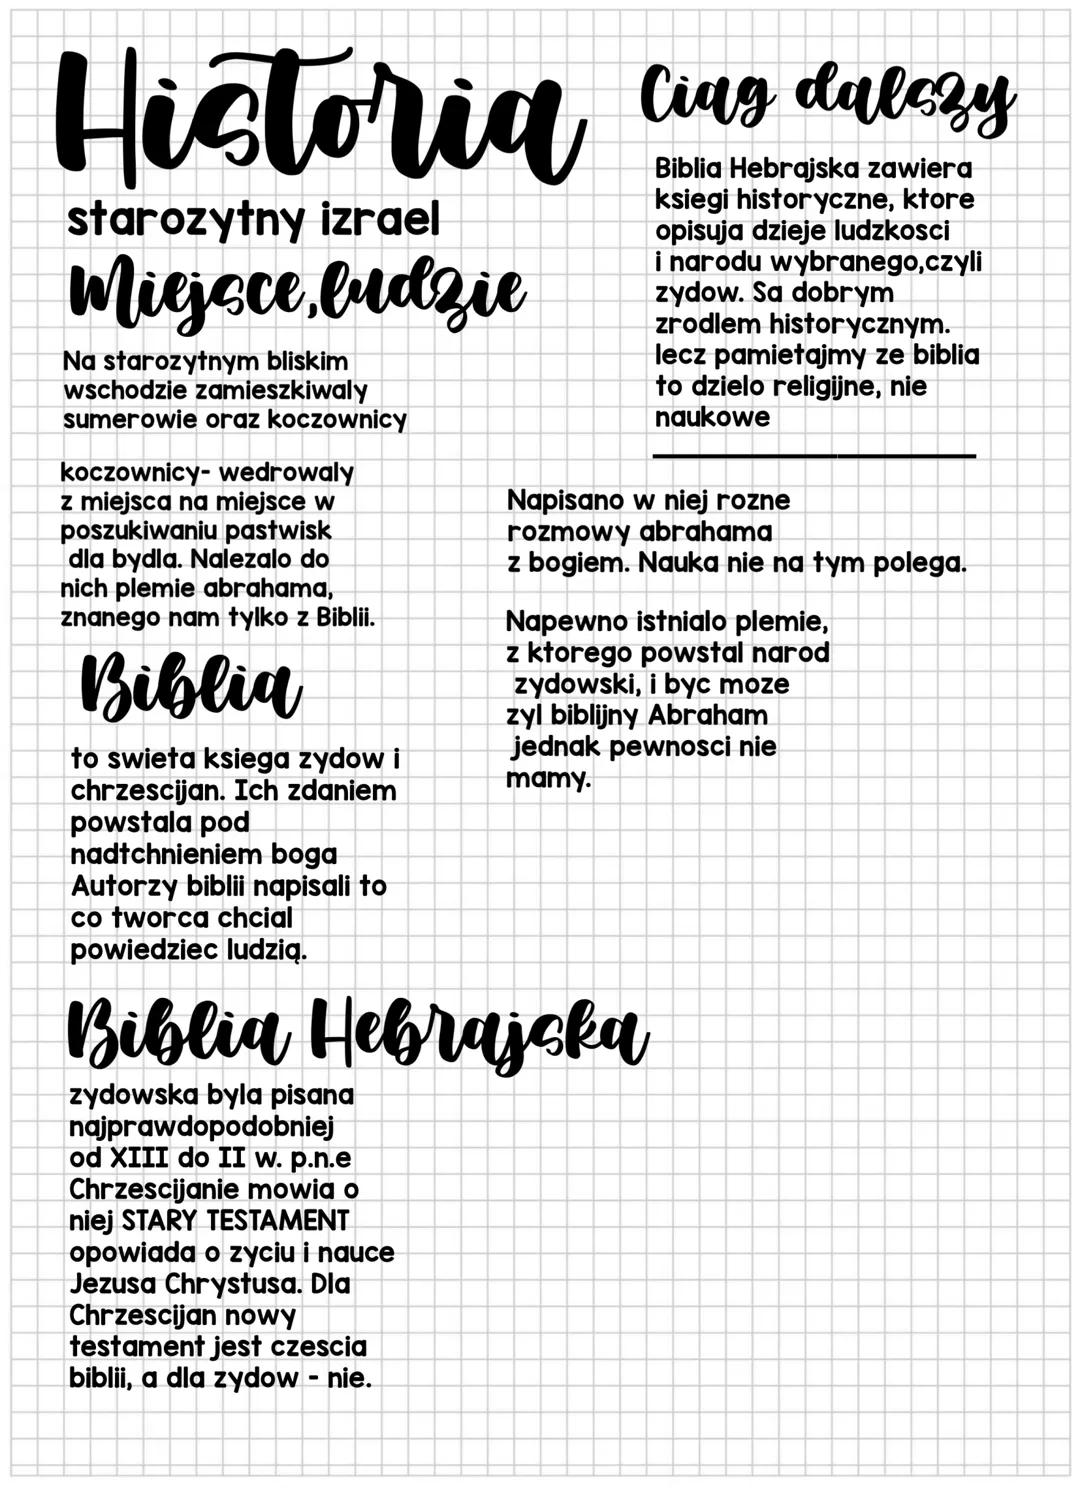 Historia
starozytny izrael
Miejsce,ludzie
Na starozytnym bliskim
wschodzie zamieszkiwaly
sumerowie oraz koczownicy
koczownicy- wedrowaly
z miejsca na miejsce w
poszukiwaniu pastwisk
dla bydla. Nalezalo do
nich plemie abrahama,
znanego nam tylko z Biblii.
Biblia
to swieta ksiega zydow i
chrzescijan. Ich zdaniem
powstala pod
nadtchnieniem boga
Autorzy biblii napisali to
co tworca chcial
powiedziec ludzią.
Biblia Hebrajska
zydowska byla pisana
najprawdopodobniej
od XIII do II w. p.n.e
Chrzescijanie mowia o
niej STARY TESTAMENT
opowiada o zyciu i nauce
Jezusa Chrystusa. Dla
Chrzescijan nowy
testament jest czescia
biblii, a dla zydow - nie.
Ciąg dalszy
Biblia Hebrajska zawiera
ksiegi historyczne, ktore
opisuja dzieje ludzkosci
i narodu wybranego,czyli
zydow. Sa dobrym
zrodlem historycznym.
lecz pamietajmy ze biblia
to dzielo religijne, nie
naukowe
Napisano w niej rozne
rozmowy abrahama
z bogiem. Nauka nie na tym polega.
Napewno istnialo plemie,
z ktorego powstal narod
zydowski, i byc moze
zyl biblijny Abraham
jednak pewnosci nie
mamy.